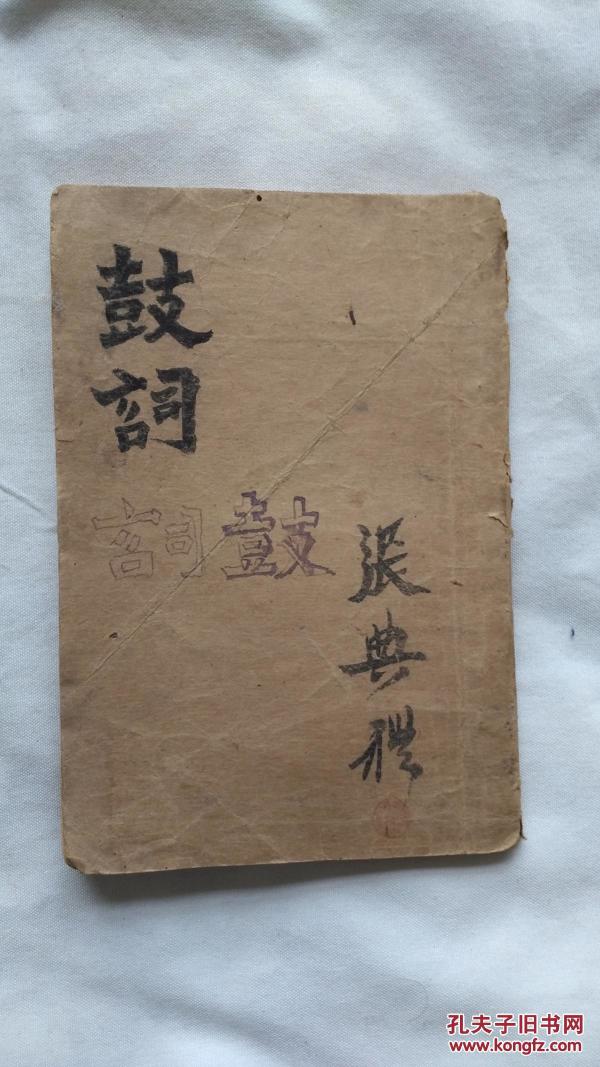 鼓詞
鼓詞
張典禮
孔夫子旧书网
www.kongfz.com